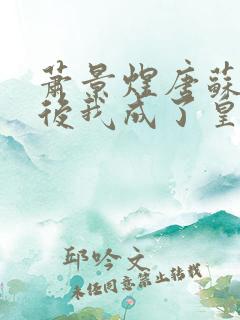 萧景煌唐蘇
後我成了皇
邱吟文
未经同意禁止转载